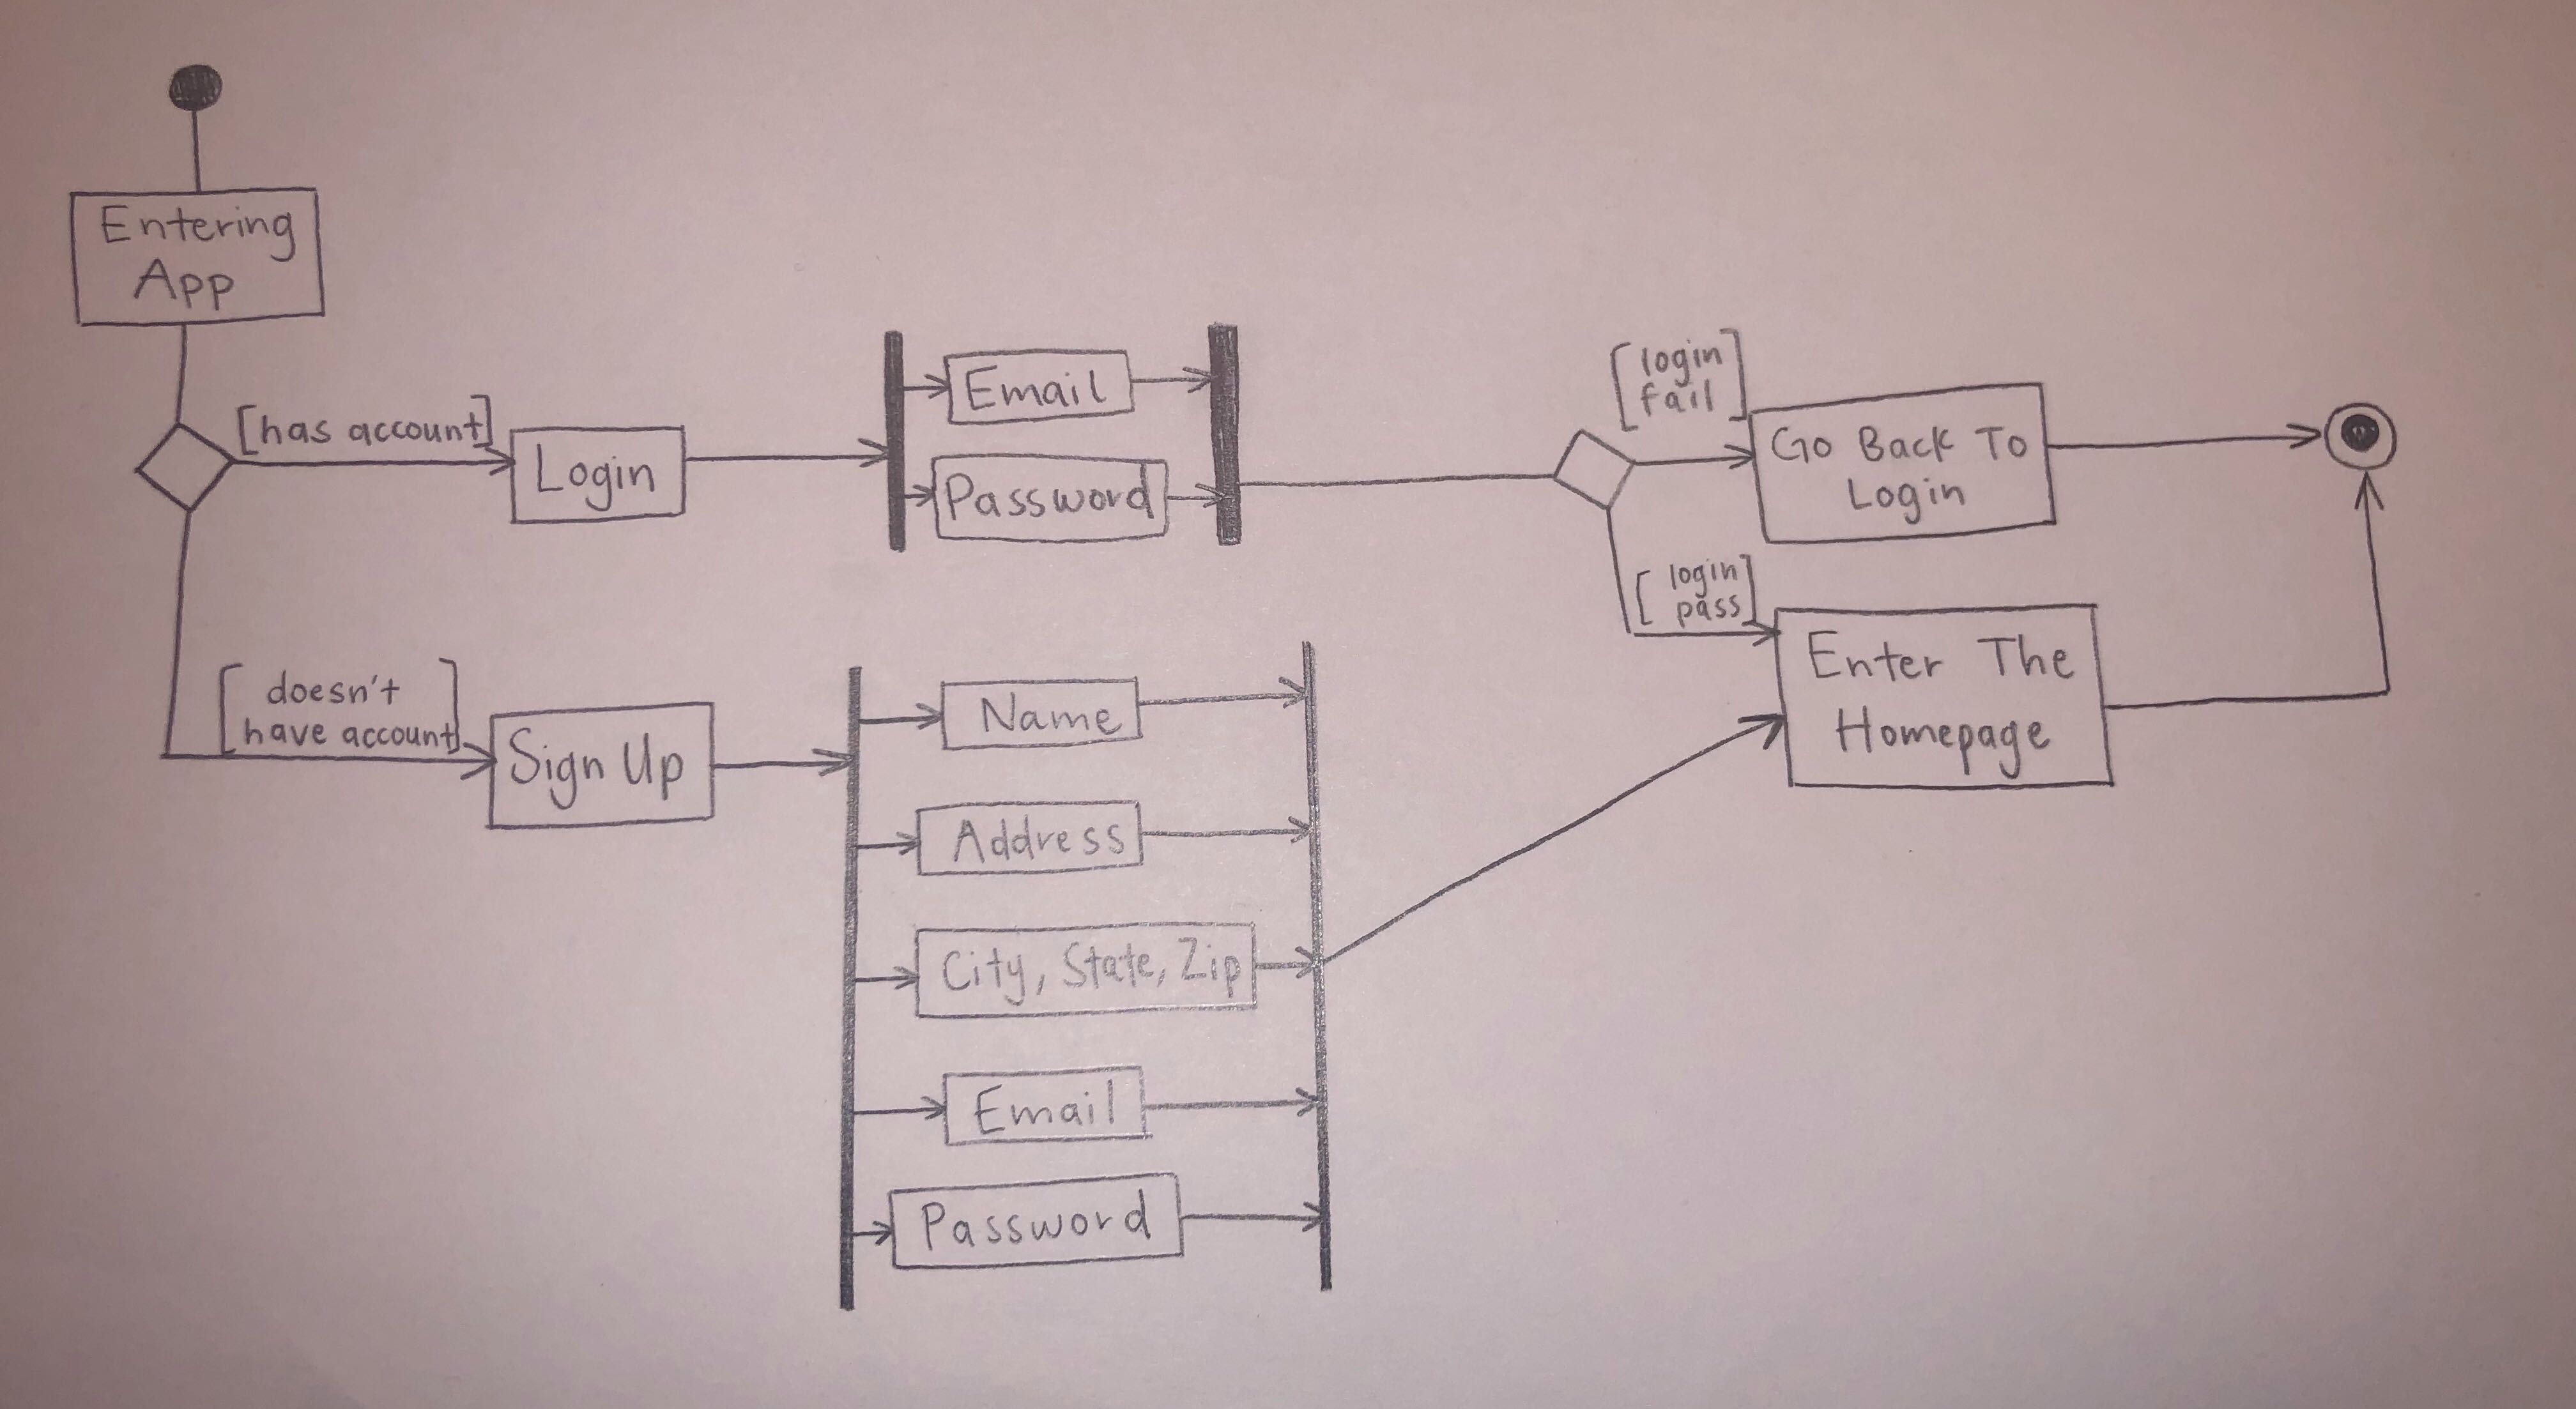 Entering
App
[has account]
Login
Email
Password
[login
fail]
Go Back To
Login
[login
pass]
Enter The
Homepage
[doesn't
have account]
Sign Up
Name
Address
City, State, Zip
Email
Password